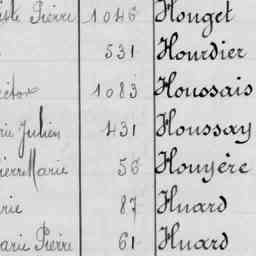 Pierre 1046 Houget
531 Hourdier
1083 Houssais
Julien 431 Houssay
Pierre Marie 56 Houyère
87 Huard
Pierre 61 Huard